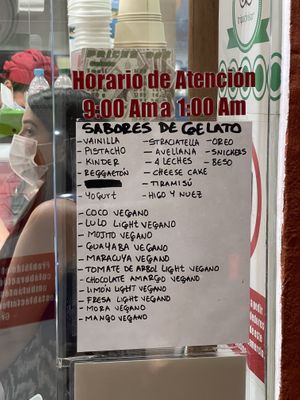 Horario de Atencion
9:00 Am a 1:00 Am
SABORES DE GELATO
- VAINILLA - STRACIATELLA - OREO
- PISTACHO - AVELLANA - SNICKERS
- KINDER - 4 LECHES - BESO
- REGGAETÓN - CHEESE CAKE
- TIRAMISÚ
- YOGURT - HIGO Y NUEZ
- COCO VEGANO
- LULO LIGHT VEGANO
- MOJITO VEGANO
- GUAYABA VEGANO
- MARACUYA VEGANO
- TOMATE DE ARBOL LIGHT VEGANO
- CHOCOLATE AMARGO VEGANO
- LIMÓN LIGHT VEGANO
- FRESA LIGHT VEGANO
- MORA VEGANO
- MANGO VEGANO